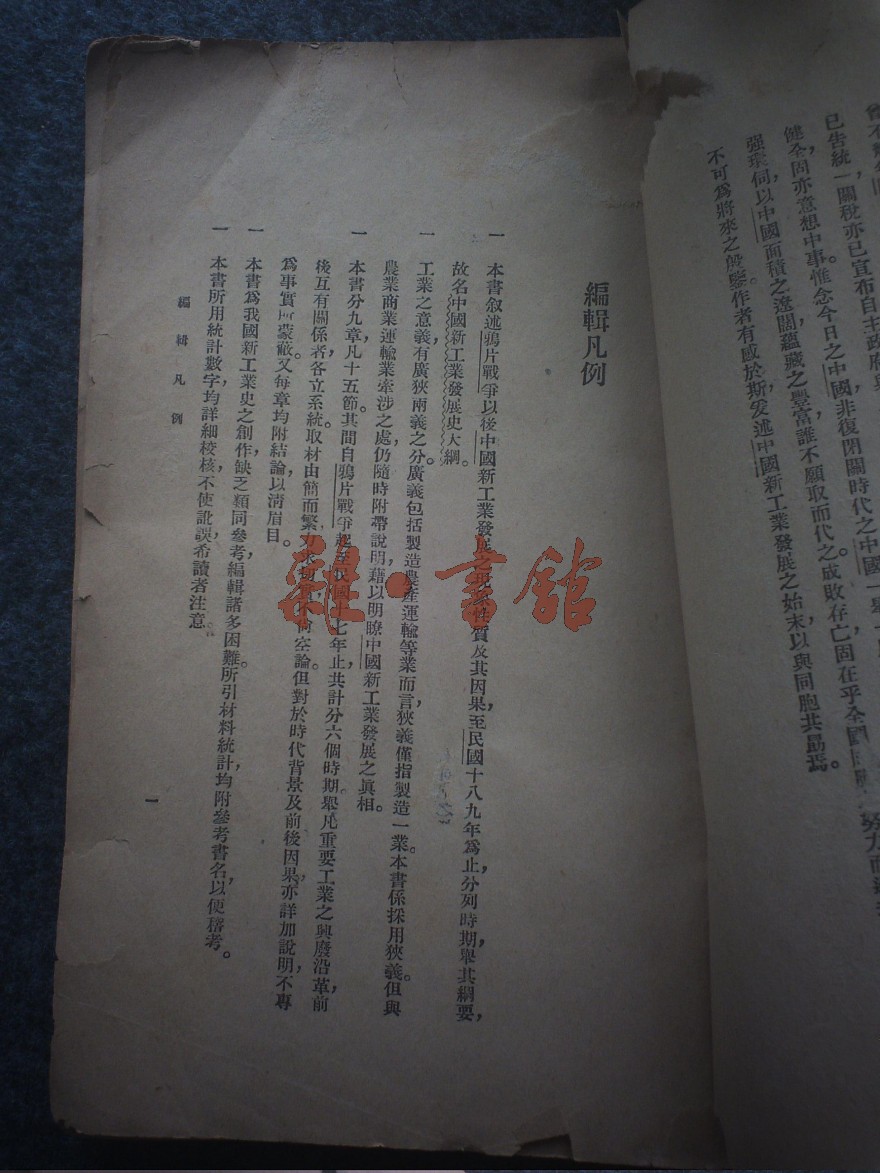 已告統一關稅亦已宣布自主政府與
健全，固亦意想中事。惟念今日之中國，非復閉關時代之中國，一舉一
强環伺，以中國面積之遼闊，蘊藏之豐富，誰不願取而代之。成敗存亡，固在乎全國
不可爲將來之殷鑒。作者有感於斯，爰述中國新工業發展之始末，以與同胞共勗焉。
編輯凡例
一 本書叙述鴉片戰爭以後，中國新工業發展之現象性質及其因果，至民國十八九年爲止，分列時期，舉其綱要，
故名中國新工業發展史大綱。
一 工業之意義，有廣狹兩義之分。廣義包括製造農產運輸等業而言，狹義僅指製造一業。本書係採用狹義，但與
農業商業運輸業牽涉之處，仍隨時附帶說明，藉以明瞭中國新工業發展之眞相。
一 本書分九章，凡十五節。其間自鴉片戰爭起，至民國十七年止，共計分六個時期。舉凡重要工業之興廢沿革，前
後互有關係者，各立系統。取材由簡而繁，力求切實，不尙空論。但對於時代背景及前後因果，亦詳加說明，不專
爲事實所蒙蔽。又每章均附結論，以淸眉目。
一 本書爲我國新工業史之創作，缺乏類同參考，編輯諸多困難。所引材料統計，均附參考書名，以便稽考。
一 本書所用統計數字，均詳細校核，不使訛誤，希讀者注意。
編輯凡例
一
雜·書館